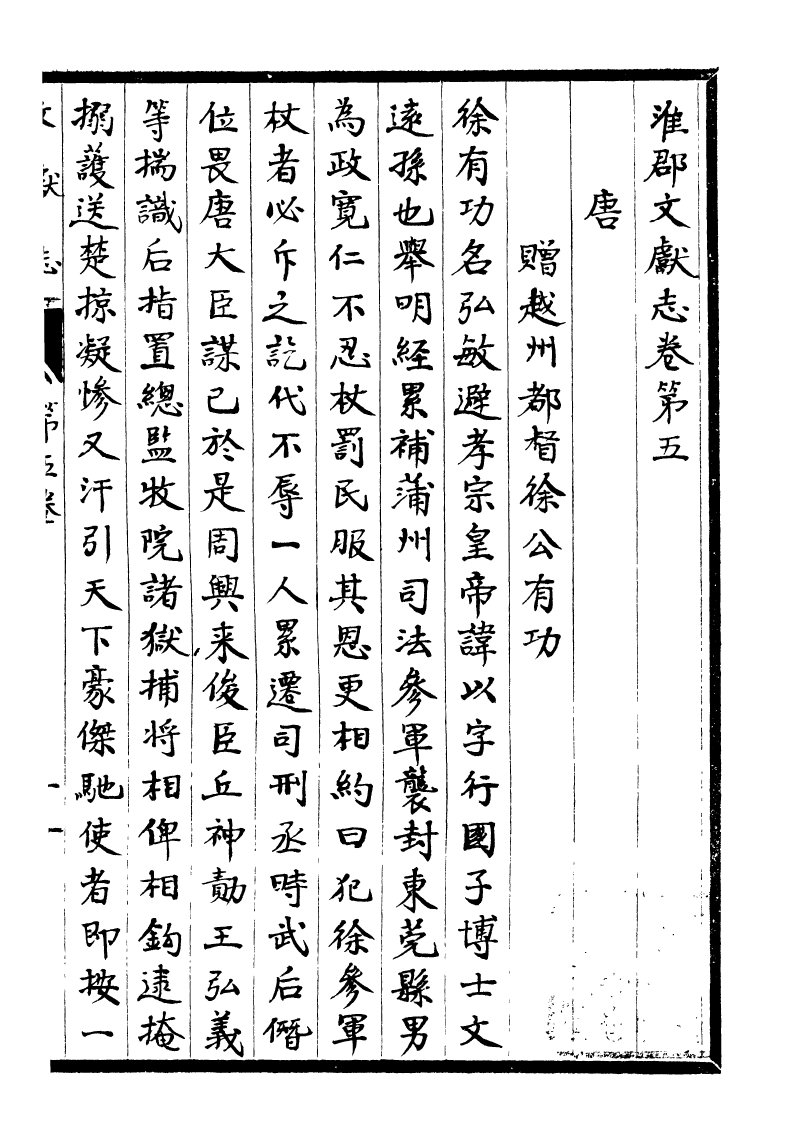 淮郡文獻志卷第五
唐
贈越州都督徐公有功
徐有功名弘敏避孝宗皇帝諱以字行國子博士文
遠孫也舉明經累補蒲州司法參軍襲封東莞縣男
為政寬仁不忍杖罰民服其恩更相約曰犯徐參軍
杖者必斥之訖代不辱一人累遷司刑丞時武后僭
位畏唐大臣謀己於是周興来俊臣丘神勣王弘義
等揣識后指置總監牧院諸獄捕將相俾相鉤逮掩
搦護送楚掠凝慘又汙引天下豪傑馳使者即按一
文獻志
第五卷
一